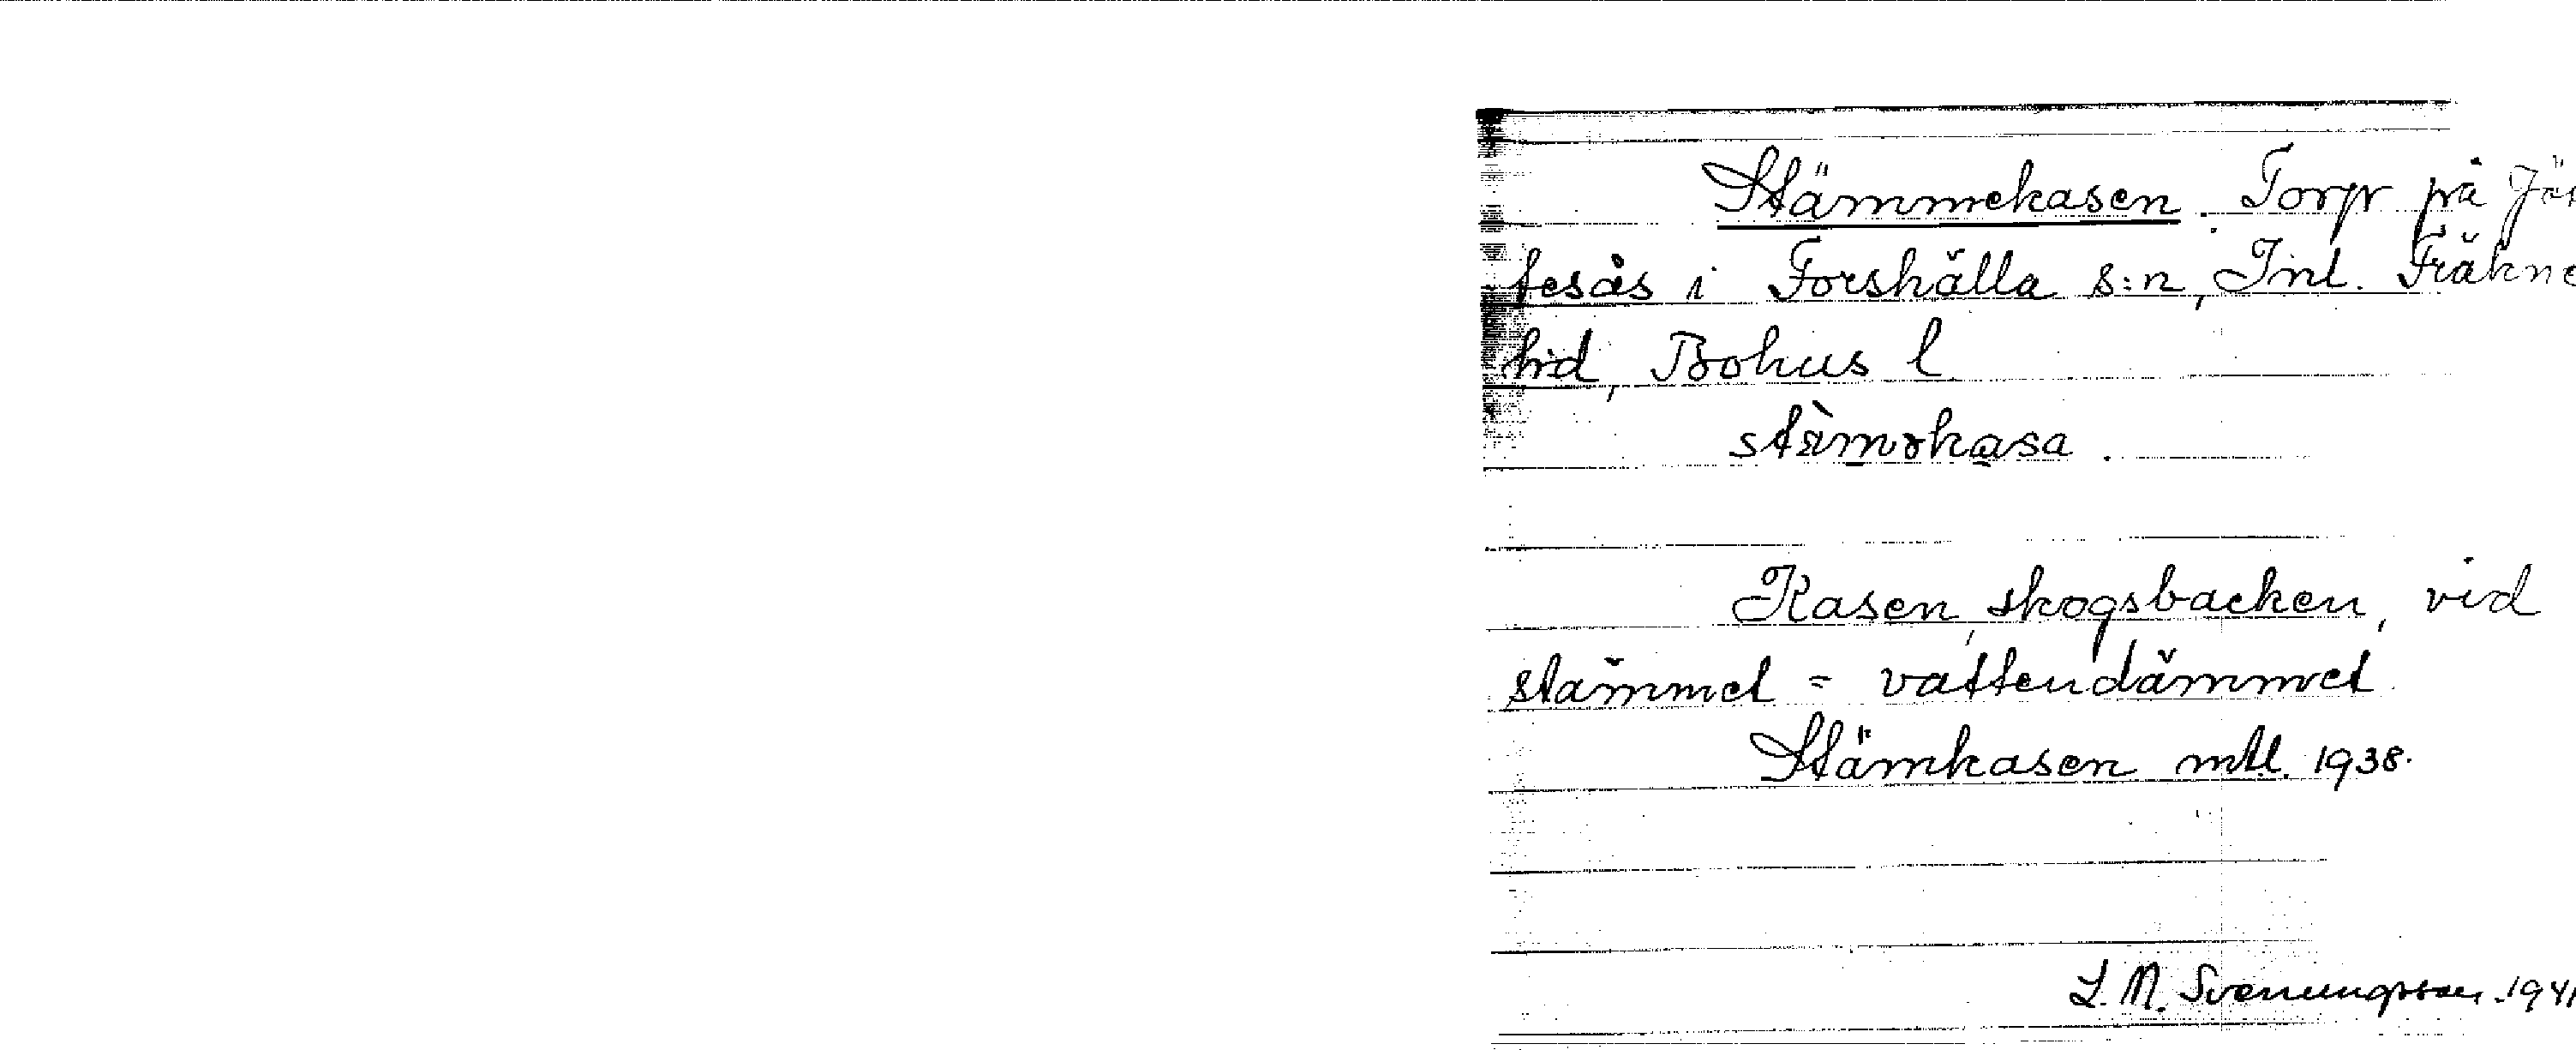 Stämmekasen. Torp på Jös
tesås i Forshälla s:n, Inl. Fräkne
hd, Bohus l
Kasen, skogsbacken, vid
stämmet = vattendämmet
Stämkasen mtl. 1938.
L. M. Svenungsson 1941